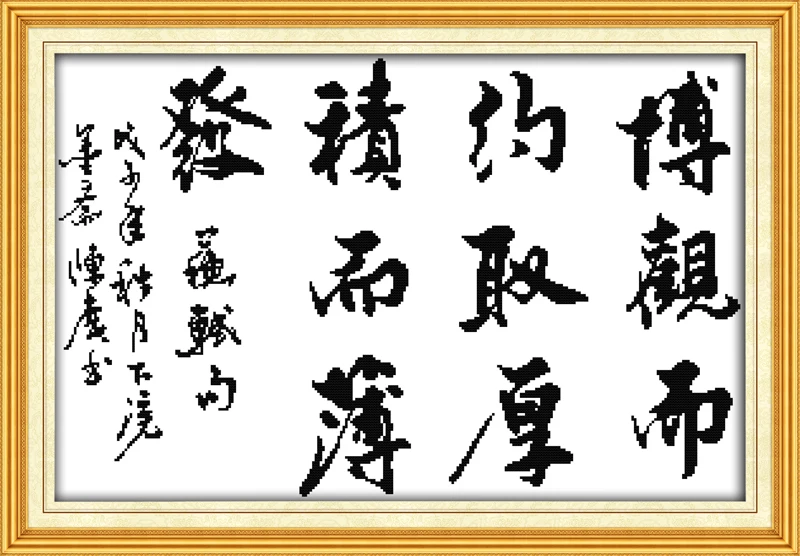 博觀而
約取厚
積而薄
發 蘇軾句
戊子年秋月下浣
陳虞书